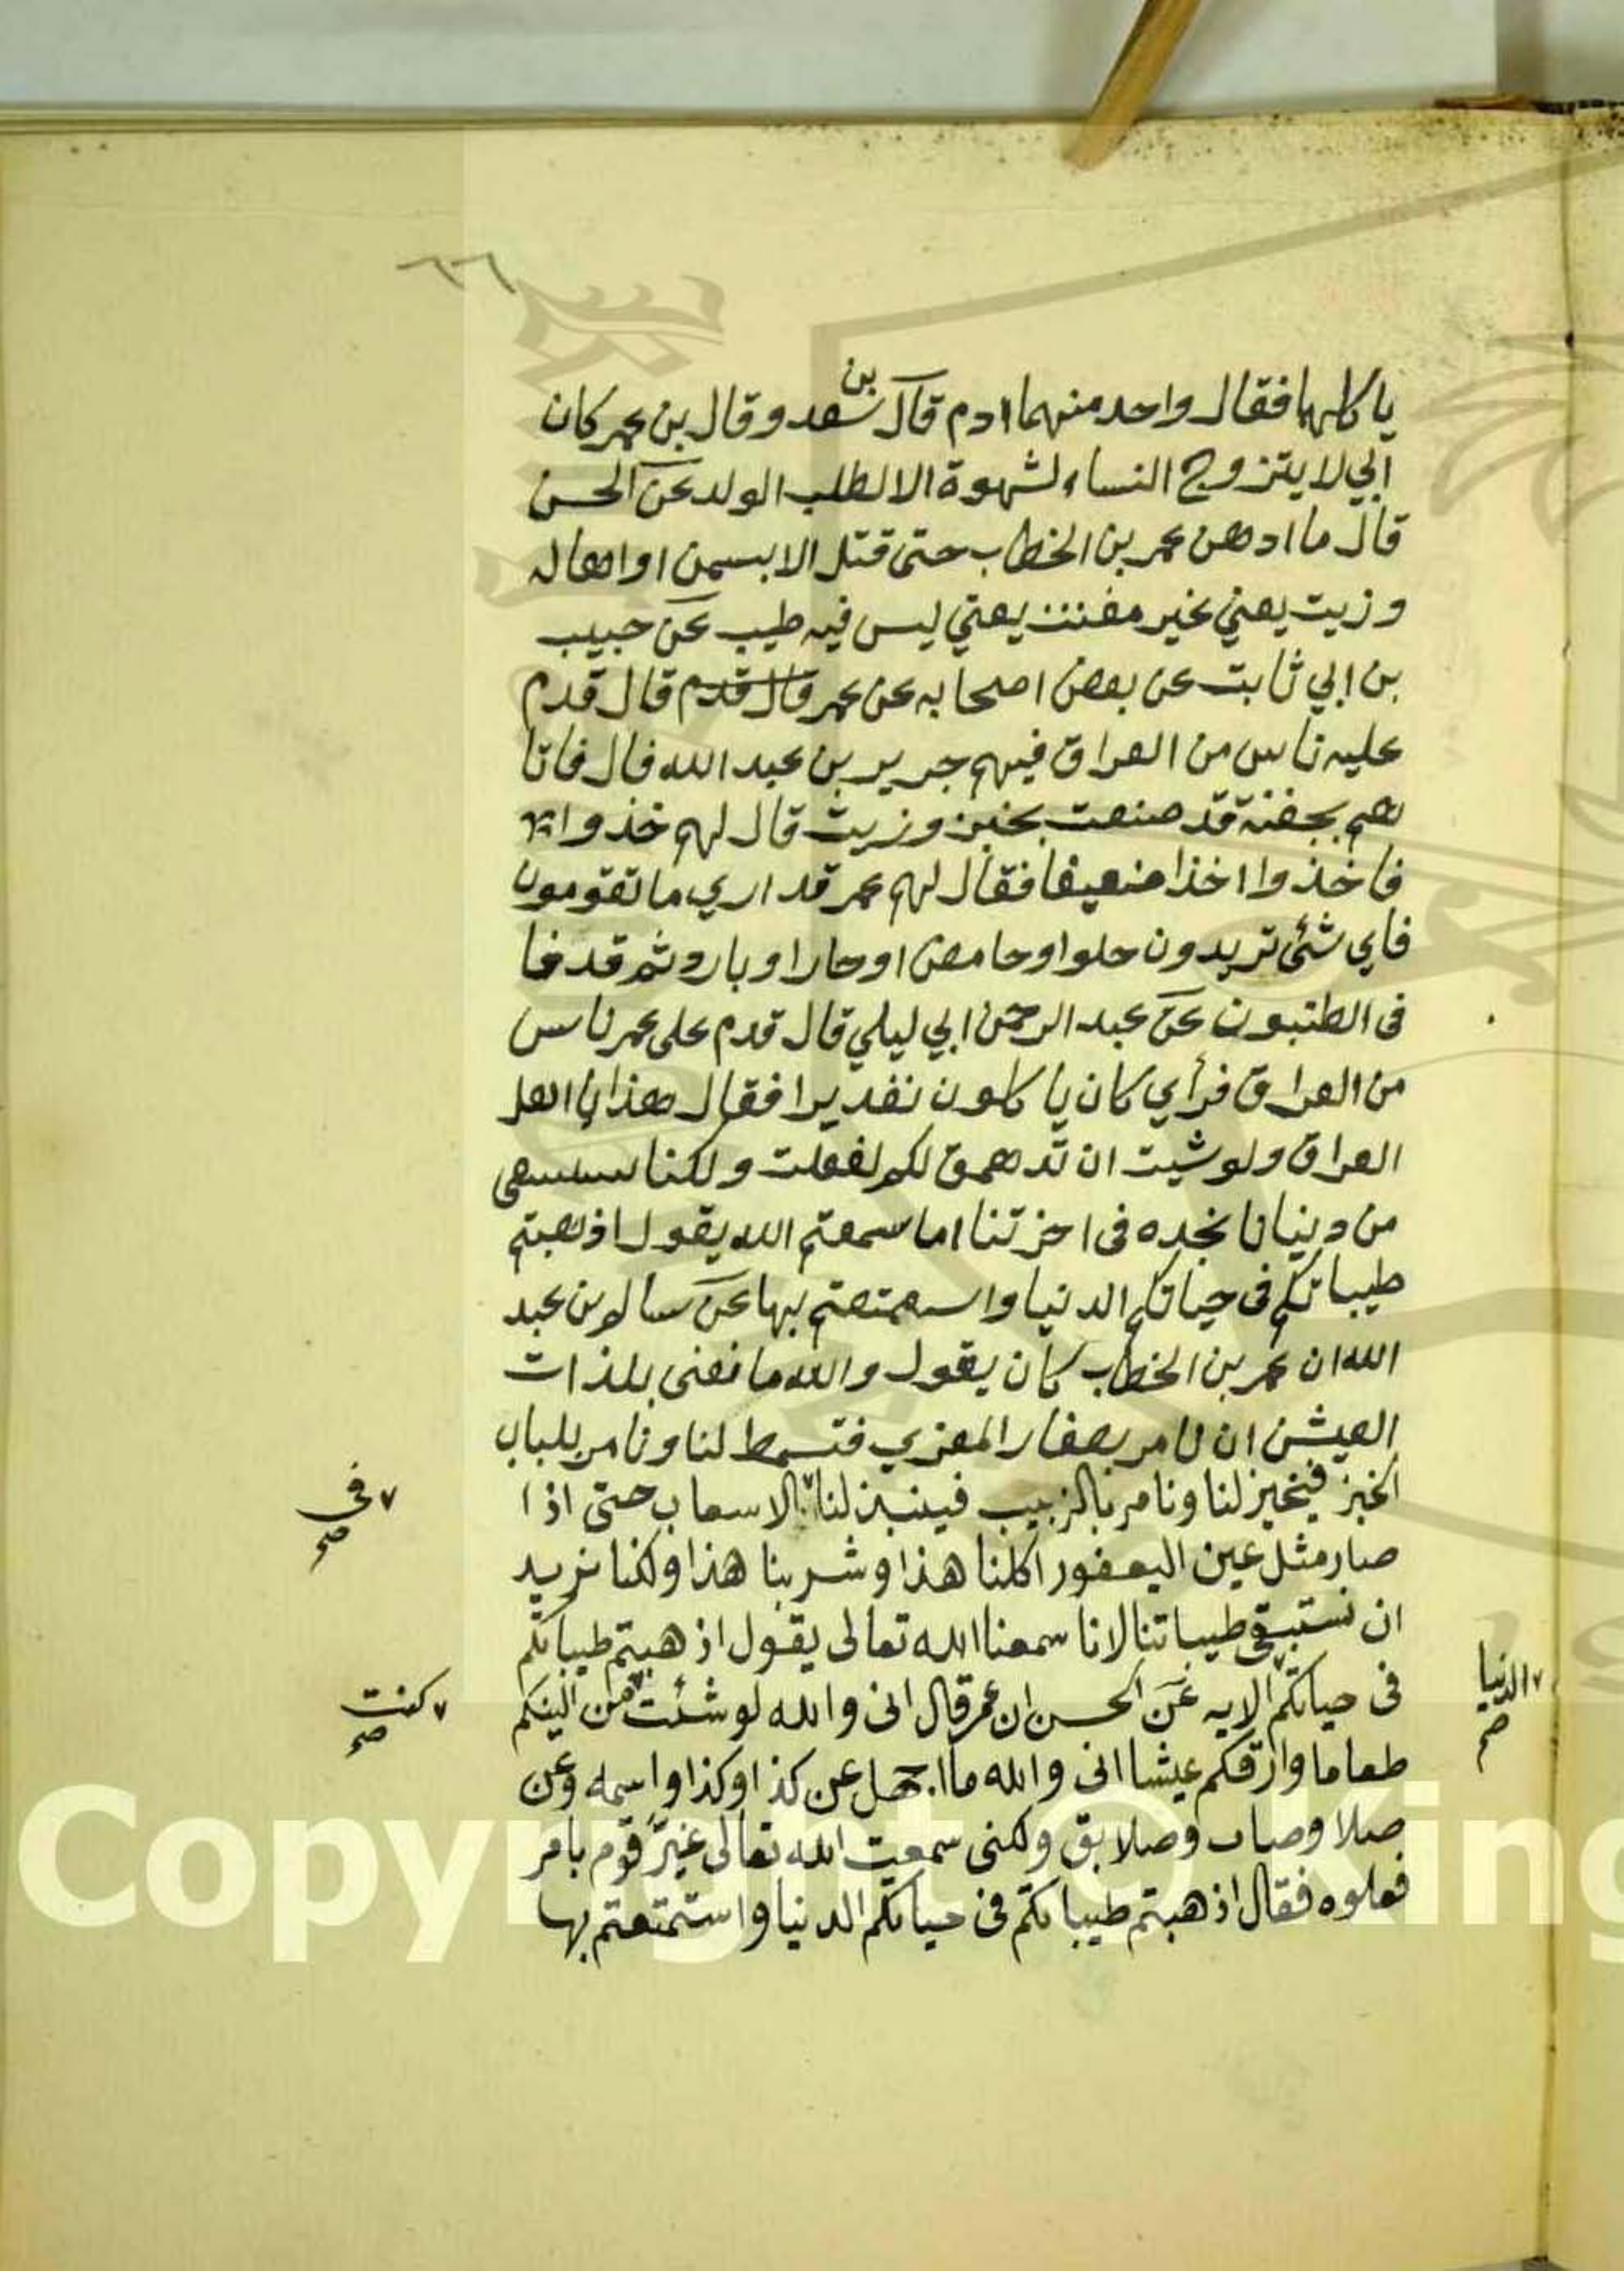 ٦٦
ياكلهما فقال واحد منهما ادم قال بن سعد وقال بن عمر كان
ابي لا يتزوج النساء لشهوة الا لطلب الولد عن الحسن
قال ما ادهن عمر بن الخطاب حتى قتل الا بسمن او اهاله
وزيت يعني غير مفتت يعني ليس فيه طيب عن حبيب
بن ابي ثابت عن بعض اصحابه عن عمر قال قدم قال قدم
عليه ناس من العراق فيهم جرير بن عبد الله قال فاتا
هم بجفنة قد صنعت بخبز وزيت قال لهم خذوا
فاخذوا اخذا ضعيفا فقال لهم عمر قد اري ما تقومون
فاي شئ تريدون حلوا وحامض او حارا وبارد ثم قدفا
فى البطون عن عبد الرحمن ابي ليلي قال قدم على عمر ناس
من العراق فرأي كان ياكلون تقديرا فقال هذا يا اهل
العراق ولو شيت ان تدهمق لكم لفعلت ولكنا
من دنيانا نجده فى اخرتنا اما سمعتم الله يقول اذهبتم
طيباتكم فى حياتكم الدنيا واستمتعتم بها عن سالم بن عبد
الله ان عمر بن الخطاب كان يقول والله ما نعنى بلذات
العيش ان نامر بصغار المعزي فتسمط لنا ونامر بلباب
الخبز فيخبز لنا ونامر بالزبيب فينبذ لنا الاسعاب حتى اذا
٧ فى
صح
صار مثل عين اليعفور اكلنا هذا وشربنا هذا ولكنا نريد
ان نستبقى طيباتنا لانا سمعنا الله تعالى يقول اذهبتم طيباتكم
فى حياتكم الايه عن الحسن ان عمر قال انى والله لو شئت من الينكم
٧ الدنيا
صح
٧ كنت
صح
طعاما وارقكم عيشا انى والله ما اجهل عن كذا وكذا واسمه وعن
صلا وصناب وصلايق ولكنى سمعت الله تعالى عير قوم بامر
فعلوه فقال اذهبتم طيباتكم فى حياتكم الدنيا واستمتعتم بها
Copyright © King